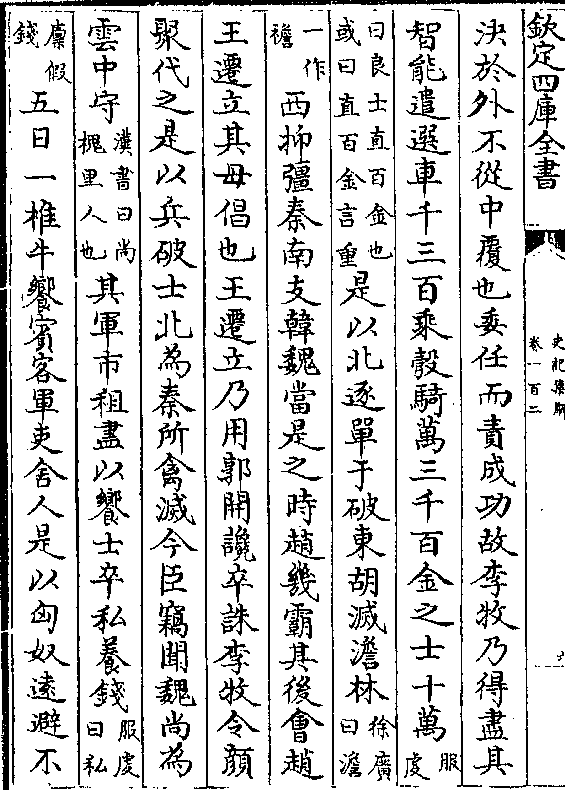 欽定四庫全書
史記集解
卷一百二
決於外不從中覆也委任而責成功故李牧乃得盡其
智能遣選車千三百乘彀騎萬三千百金之士十萬服虔
曰良士直百金也或曰直百金言重是以北逐單于破東胡滅澹林徐廣曰澹
一作襜西抑彊秦南支韓魏當是之時趙幾霸其後會趙
王遷立其母倡也王遷立乃用郭開讒卒誅李牧令顔
聚代之是以兵破士北為秦所禽滅今臣竊聞魏尚為
雲中守漢書曰尚槐里人也其軍市租盡以饗士卒私養錢服虔曰私
廪假錢五日一椎牛饗賓客軍吏舍人是以匈奴逺避不